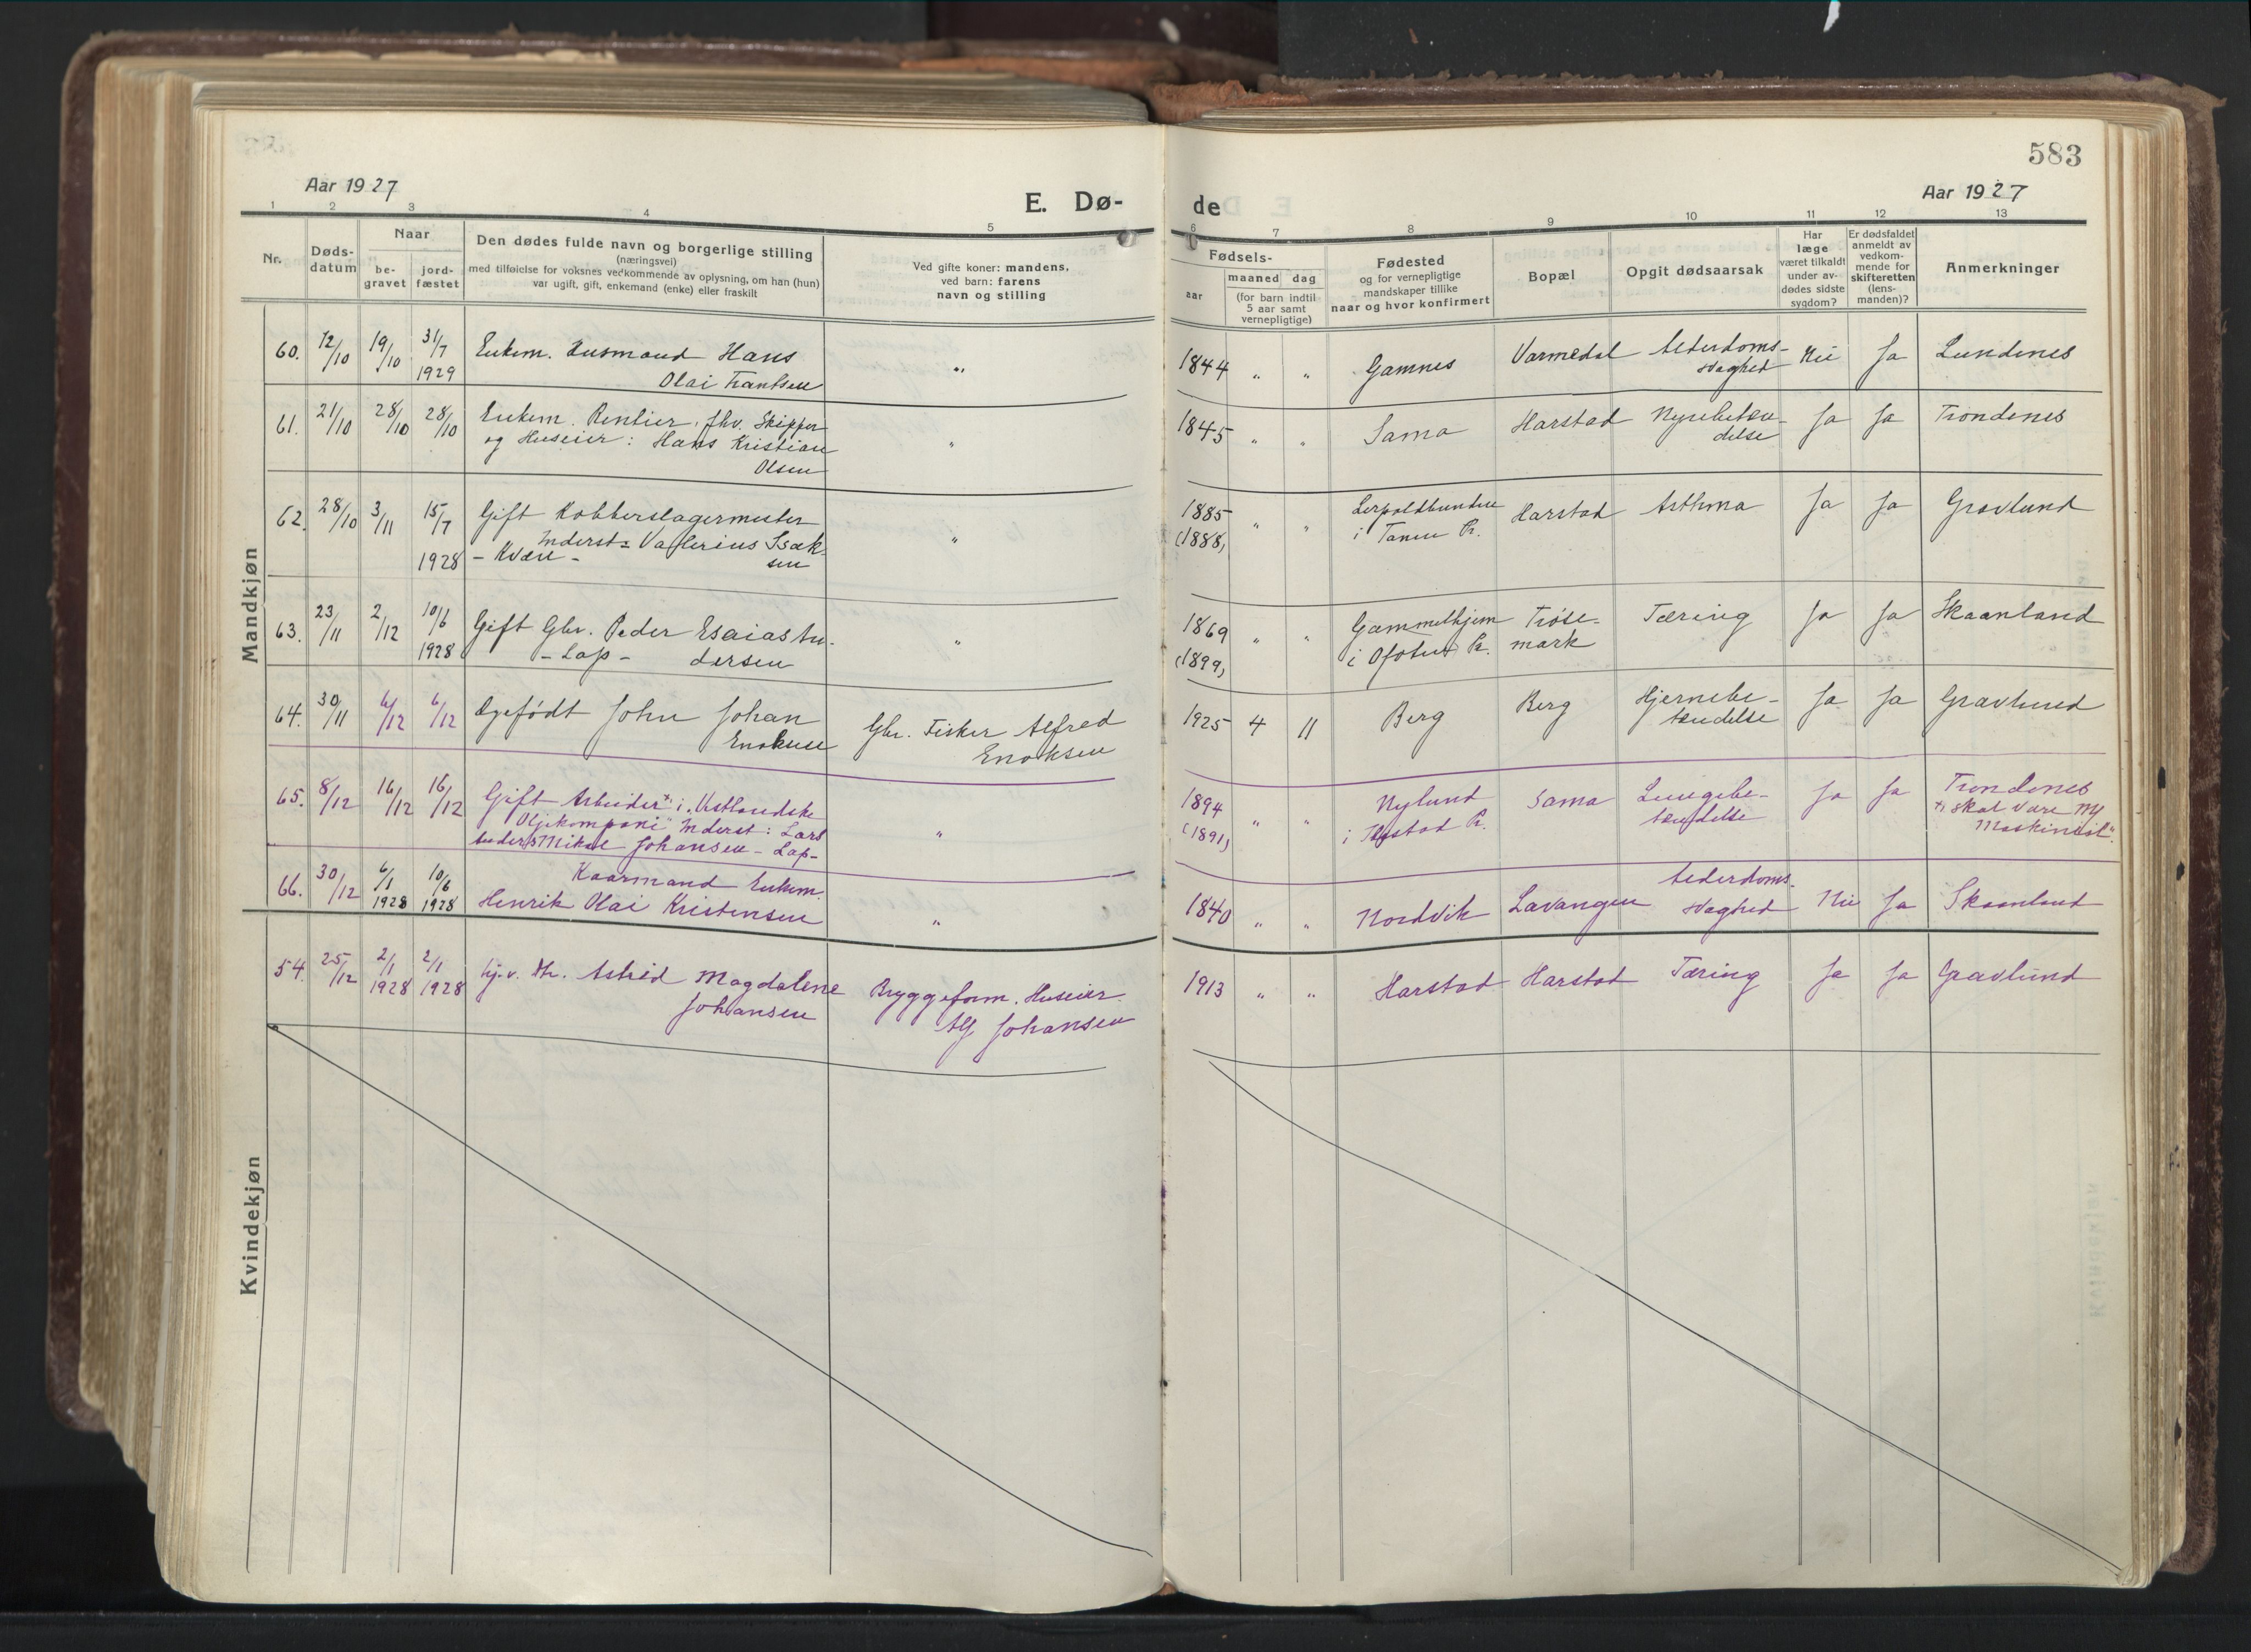 583
Aar 1927
E. Dø-
de
Aar 1927
1 2 3 4 5 6 7 8 9 10 11 12 13
Nr.
Døds-
datum
Naar
be-
gravet
jord-
fæstet
Den dødes fulde navn og borgerlige stilling
(næringsvei)
med tilføielse for voksnes vedkommende av oplysning, om han (hun)
var ugift, gift, enkemand (enke) eller fraskilt
Ved gifte koner: mandens,
ved barn: farens
navn og stilling
Fødsels-
aar
maaned dag
(for barn indtil
5 aar samt
vernepligtige)
Fødested
og for vernepligtige
mandskaper tillike
naar og hvor konfirmert
Bopæl
Opgit dødsaarsak
Har
læge
været tilkaldt
under av-
dødes sidste
sygdom?
Er dødsfaldet
anmeldt av
vedkom-
mende for
skifteretten
(lens-
manden)?
Anmerkninger
Mandkjøn
60. 12/10 19/10 31/7 Enkem. Husmand Hans " 1844 " " Gamnes Varmedal Alderdoms- Nei Ja Lundenes
1929 Olai Frantsen svaghed
61. 21/10 28/10 28/10 Enkem. Rentier, fhv. Skipper " 1845 " " Sama Harstad Nyrebeten- Ja Ja Trondenes
og Huseier: Hans Kristian delse
Olsen
62. 28/10 3/11 15/7 Gift Kobberslagermester " 1885 " " Leipoldbunden Harstad Asthma Ja Ja Gravlund
Inderst: Valerius Isak- (1888) i Tanen P.
1928 - Kvæn - sen
63. 23/11 2/12 10/6 Gift Gbr. Peder Esaias An- " 1869 " " Gammelhjem Trøse- Tæring Ja Ja Skaanland
1928 - Lap - dersen (1899) i Ofoten P. mark
64. 30/11 6/12 6/12 Ægefødt John Johan Gbr. Fisker Alfred 1925 4 11 Berg Berg Hjernebe- Ja Ja Gravlund
Enoksen Enoksen tændelse
65. 8/12 16/12 16/12 Gift Arbeider x) i "Vestlandske " 1894 " " Nylund Sama Lungebe- Ja Ja Trondenes
Oljekompani" Inderst: Lars (1891) i P. tændelse x) skal være "Ny
Anders Mikal Johansen - Lap - Maskinoil".
66. 30/12 6/1 10/6 Kaarmand Enkem. " 1840 " " Nordvik Lavangen Alderdoms- Nei Ja Skaanland
1928 1928 Henrik Olai Kristensen svaghed
Kvindekjøn
54. 25/12 2/1 2/1 hj.v. dtr. Astrid Magdalene Bryggeform. Huseier 1913 " " Harstad Harstad Tæring Ja Ja Gravlund
1928 1928 Johansen Alf Johansen